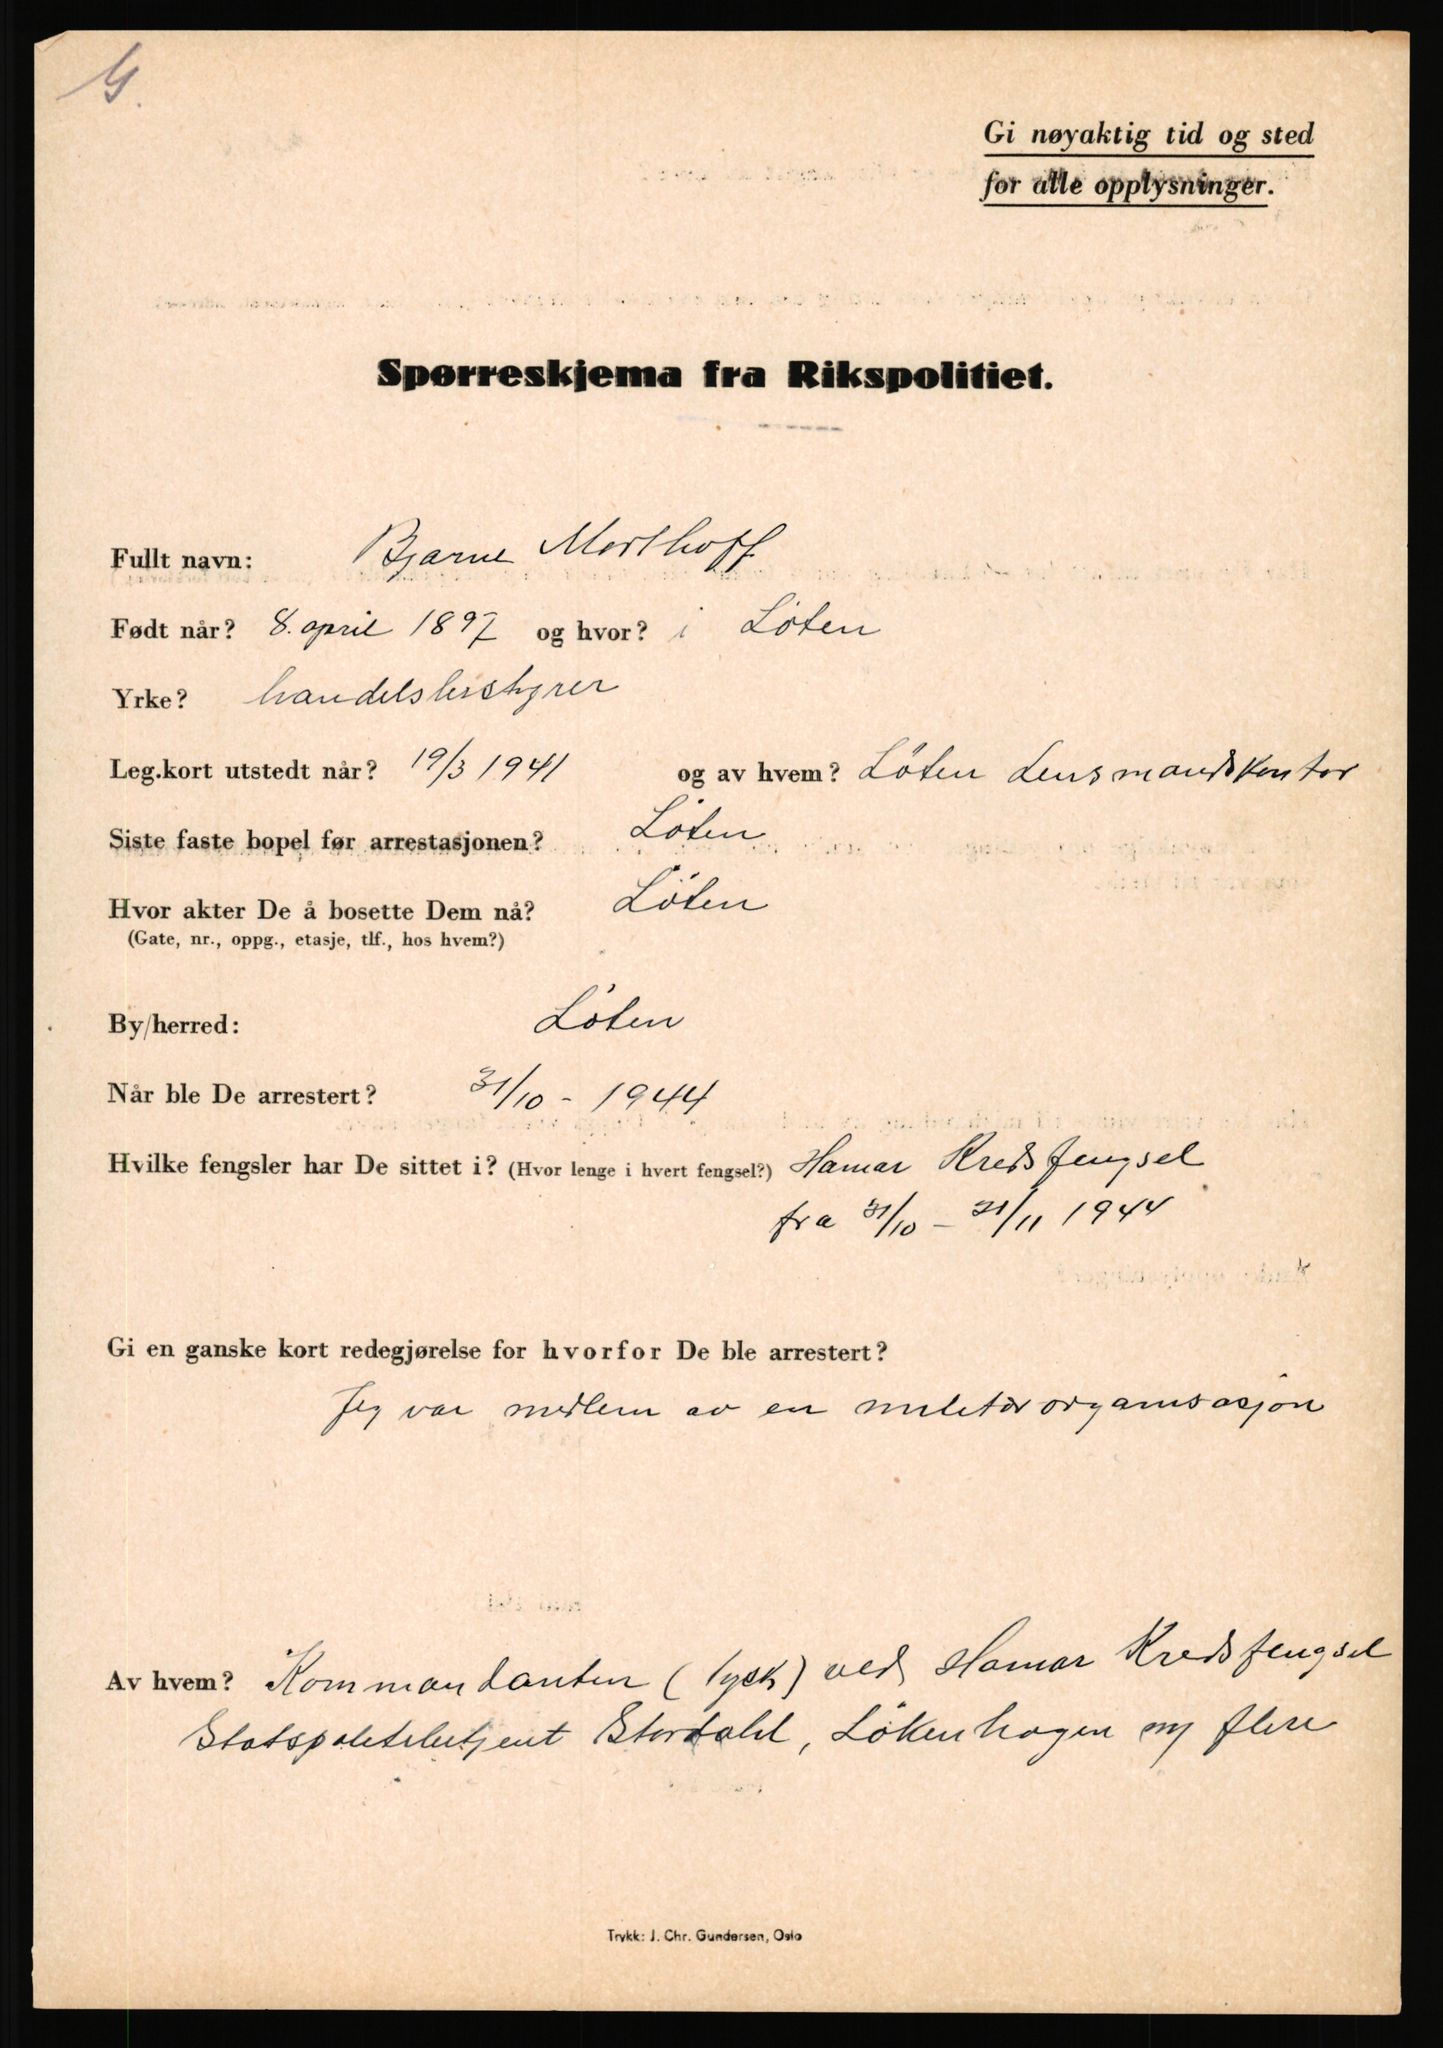 G.
Gi nøyaktig tid og sted
for alle opplysninger.
Spørreskjema fra Rikspolitiet.
Fullt navn: Bjarne Morthoff
Født når? 8. april 1897 og hvor? i Löten
Yrke? handelsbestyrer
Leg.kort utstedt når? 19/3 1941 og av hvem? Löten Lensmandskontor
Siste faste bopel før arrestasjonen? Löten
Hvor akter De å bosette Dem nå? Löten
(Gate, nr., oppg., etasje, tlf., hos hvem?)
By/herred: Löten
Når ble De arrestert? 31/10 - 1944
Hvilke fengsler har De sittet i? (Hvor lenge i hvert fengsel?) Hamar Kredsfengsel
fra 31/10 - 21/11 1944
Gi en ganske kort redegjørelse for hvorfor De ble arrestert?
Jeg var medlem av en miletærorganisasjon
Av hvem? Kommandanten (tysk) ved Hamar Kredsfengsel
Statspoletibetjent Stordahl, Lökenhagen og flere
Trykk: J. Chr. Gundersen, Oslo